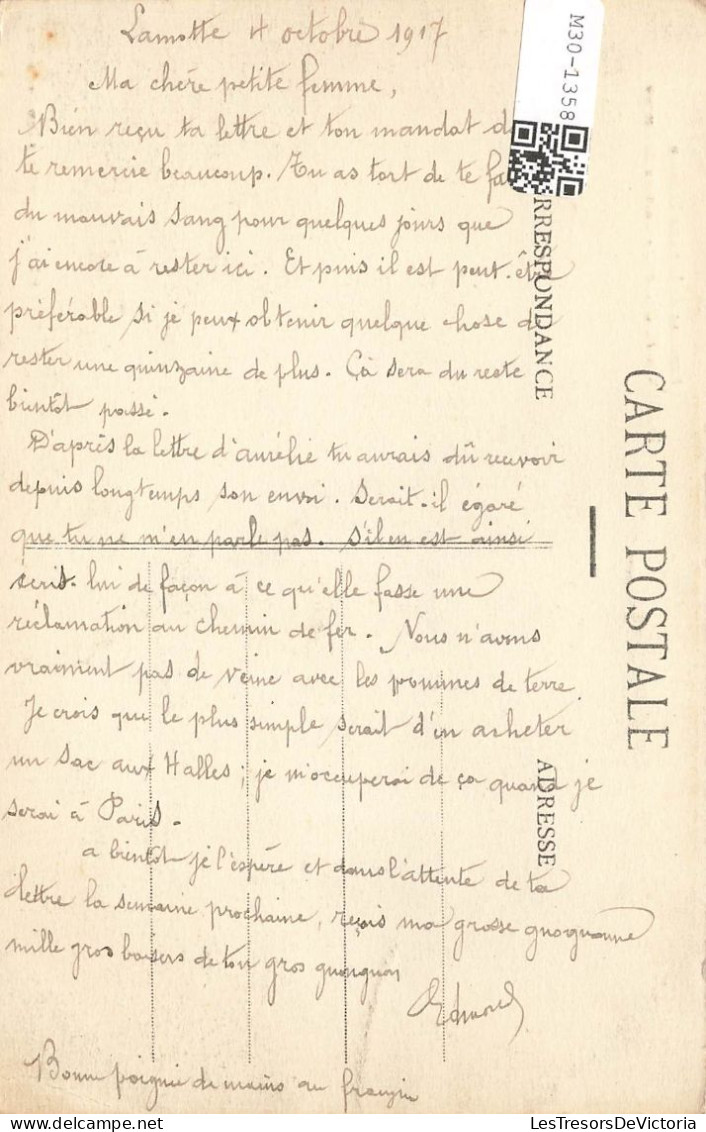 Lamotte 4 octobre 1917
Ma chère petite femme,
Bien reçu ta lettre et ton mandat d
te remercie beaucoup. Tu as tort de te fa
du mauvais sang pour quelques jours que
j'ai encore à rester ici. Et puis il est peut-être
préférable si je peux obtenir quelque chose de
rester une quinzaine de plus. Çà sera du reste
bientôt passé.
D'après la lettre d'aurélie tu aurais dû recevoir
depuis longtemps son envoi. Serait-il égaré
que tu ne m'en parle pas. S'il en est ainsi
écris-lui de façon à ce qu'elle fasse une
réclamation au chemin de fer. Nous n'avons
vraiment pas de veine avec les pommes de terre.
Je crois que le plus simple serait d'en acheter
un sac aux Halles; je m'occuperai de ça quand je
serai à Paris.
a bientôt je l'espère et dans l'attente de ta
lettre la semaine prochaine, reçois ma grosse
mille gros baisers de ton gros
Edmond
Bonne poignée de mains au
CORRESPONDANCE
ADRESSE
CARTE POSTALE
M30-1358
LesTresorsDeVictoria